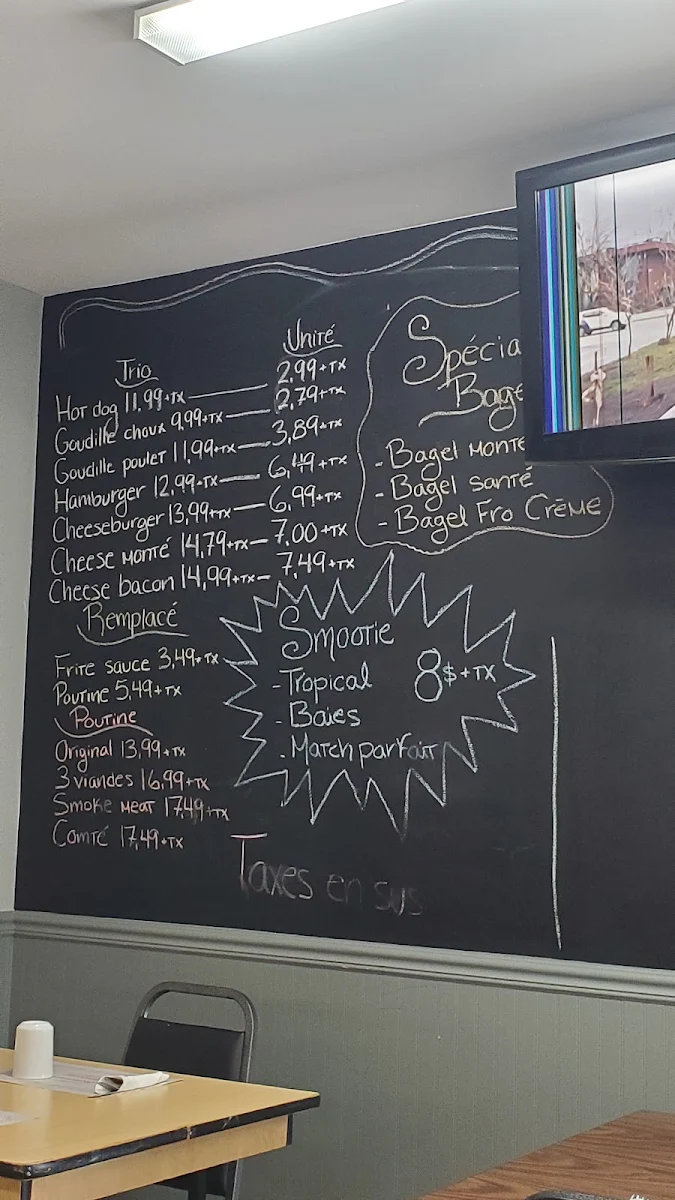 Trio Unité
Hot dog 11,99+TX 2,99+TX
Goudille choux 9,99+TX 2,79+TX
Goudille poulet 11,99+TX 3,89+TX
Hamburger 12,99+TX 6,49+TX
Cheeseburger 13,99+TX 6,99+TX
Cheese monté 14,79+TX 7,00+TX
Cheese bacon 14,99+TX 7,49+TX
Remplacé
Frite sauce 3,49+TX
Poutine 5,49+TX
Poutine
Original 13,99+TX
3 viandes 16,99+TX
Smoke meat 17,49+TX
Comté 17,49+TX
Spécia
Bage
- Bagel monté
- Bagel santé
- Bagel Fro Crème
Smootie
- Tropical 8$+TX
- Baies
- Match parfait
Taxes en sus